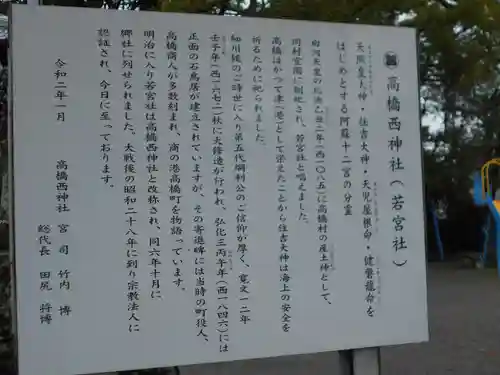 高橋西神社（若宮社）
天照皇大神・住吉大神・天児屋根命・健磐龍命を
はじめとする阿蘇十二宮の分霊
白河天皇の応徳乙丑二年（西一〇八五）に高橋村の産土神として、
岡村宮閣に創祀され、若宮社と唱えました。
高橋はかつて津（港）として栄えたことから住吉大神は海上の安全を
祈るために祀られました。
細川候のご時世に入り第五代綱利公のご信仰が厚く、寛文一二年
壬子年（西一六七二）秋に大修造が行われ、弘化三丙午年（西一八四六）には
正面の石鳥居が建立されていますが、その寄進碑には当時の町役人、
高橋商人が多数刻まれ、商の港高橋町を物語っています。
明治に入り若宮社は高橋西神社と改称され、同六年十月に
郷社に列せられました。大戦後の昭和二十八年に到り宗教法人に
認証され、今日に至っております。
令和二年一月
高橋西神社 宮司 竹内 博
総代長 田尻 将博